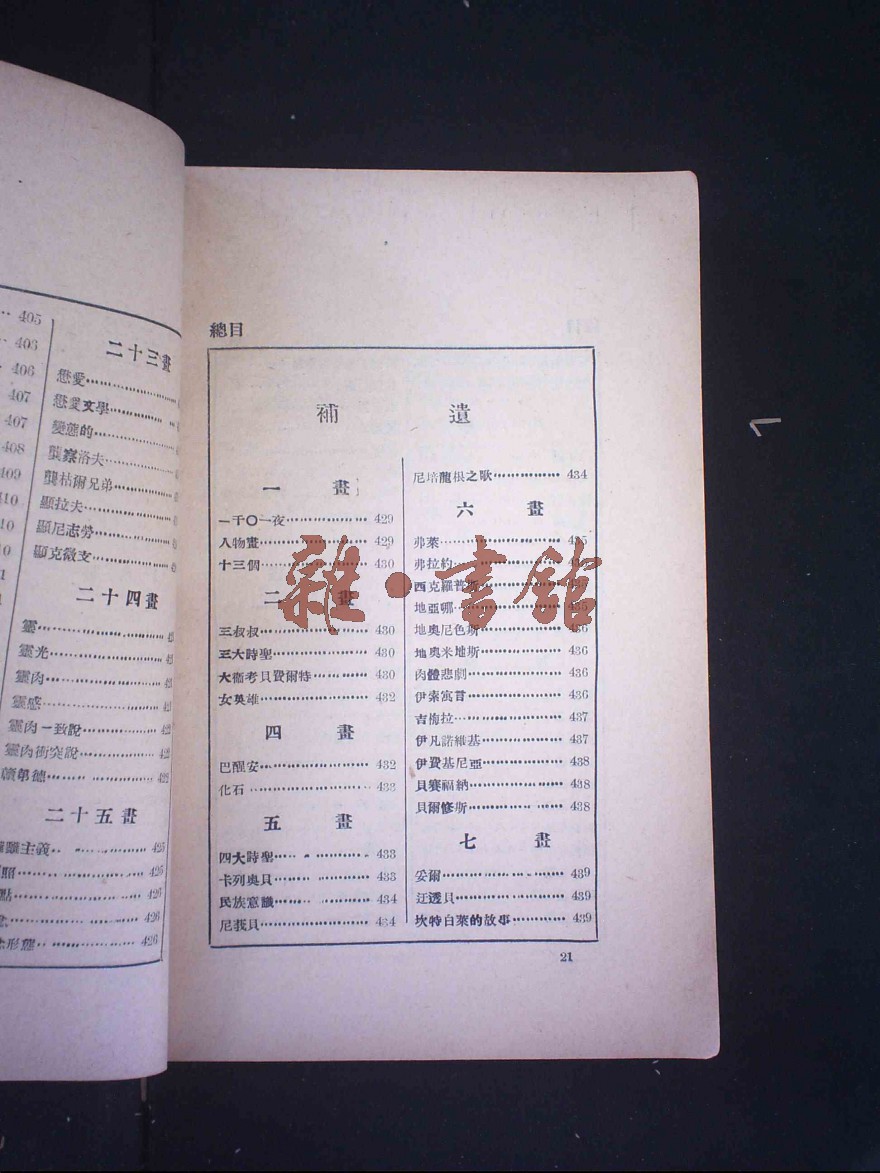 405
403
406
407
407
408
409
410
410
二十三畫
戀愛
戀愛文學
變態的
龔察洛夫
龔枯爾兄弟
顯拉夫
顯尼志勞
顯克微支
二十四畫
靈
靈光
靈肉
靈感
靈肉一致說
靈肉衝突說 422
二十五畫
主義 425
照 426
點 426
426
形態 426
總目
補遺
一畫
一千〇一夜 429
人物畫 429
十三個 430
二 畫
三叔叔 430
三大詩聖 430
大衞考貝費爾特 430
女英雄 432
四畫
巴醒安 432
化石 433
五畫
四大詩聖 433
卡列奧貝 433
民族意識 434
尼莪貝 434
尼培龍根之歌 434
六畫
弗萊
弗拉約
西克羅普斯
地亞哪
地奧尼色斯 436
地奧米地斯 436
肉體悲劇 436
伊索寓言 436
吉梅拉 437
伊凡諾維基 437
伊費基尼亞 438
貝賽福納 438
貝爾修斯 438
七畫
妥爾 439
迂透貝 439
坎特白萊的故事 439
21
雜·書館